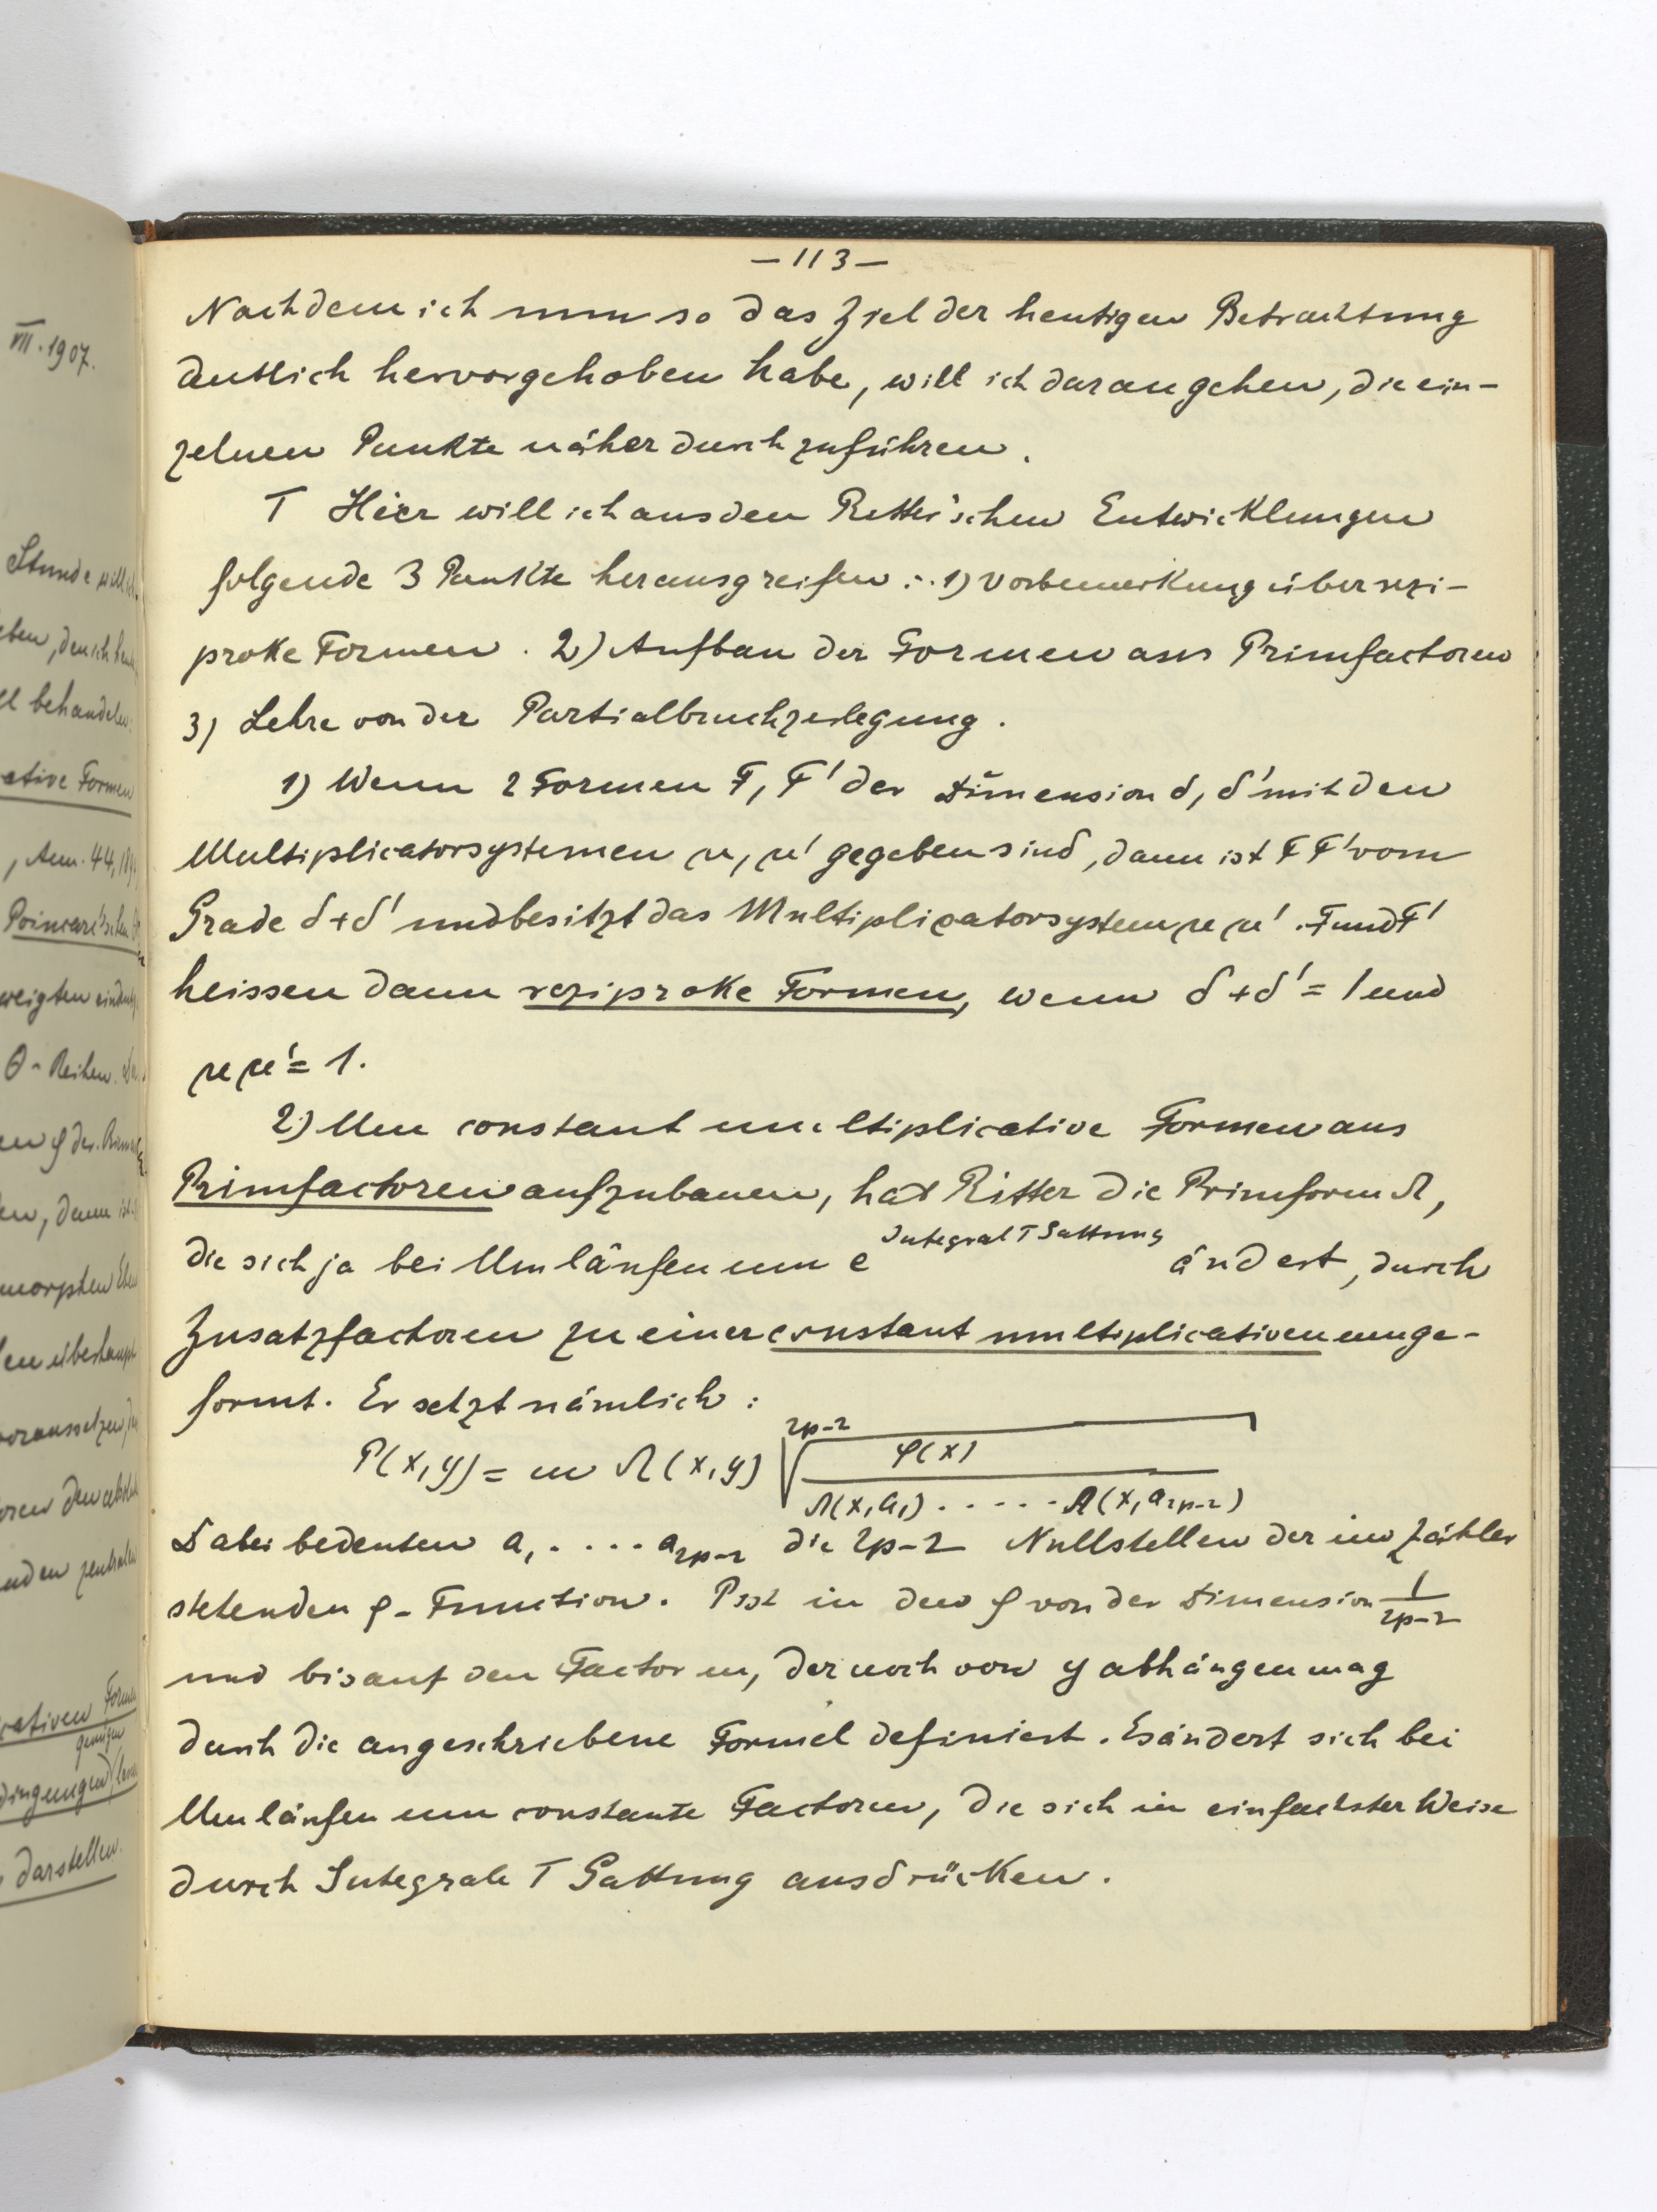 — 113 —
Nachdem ich nun so das Ziel der heutigen Betrachtung
deutlich hervorgehoben habe, will ich daran gehen, die ein-
zelnen Punkte näher durchzuführen.
I Hier will ich aus den Ritter'schen Entwicklungen
folgende 3 Punkte herausgreifen: 1) Vorbemerkung über rezi-
proke Formen. 2) Aufbau der Formen aus Primfactoren
3) Lehre von der Partialbruchzerlegung.
1) Wenn 2 Formen F, F' der Dimension δ, δ' mit den
Multiplicatorsystemen μ, μ' gegeben sind, dann ist F F' vom
Grade δ+δ' und besitzt das Multiplicatorsystem μ μ'. F und F'
heissen dann reziproke Formen, wenn δ+δ' = 1 und
μ μ' = 1.
2) Um constant multiplicative Formen aus
Primfactoren aufzubauen, hat Ritter die Primform Ω,
die sich ja bei Umläufen um e^{Integral I Gattung} ändert, durch
Zusatzfactoren zu einer constant multiplicativen umge-
formt. Er setzt nämlich:
P(x,y) = m Ω(x,y) \sqrt[2p-2]{\frac{φ(x)}{Ω(x,a_1) ..... Ω(x,a_{2p-2})}}
Dabei bedeuten a_1 .... a_{2p-2} die 2p-2 Nullstellen der im Zähler
stehenden φ-Function. P ist in den φ von der Dimension \frac{1}{2p-2}
und bis auf den Factor m, der noch von y abhängen mag
durch die angeschriebene Formel definiert. Es ändert sich bei
Umläufen um constante Factoren, die sich in einfachster Weise
durch Integrale I Gattung ausdrücken.
VII. 1907.
Stunde
behandeln.
Formen
Ann. 44,
Poincaré'schen
Θ-Reihen.
darstellen.